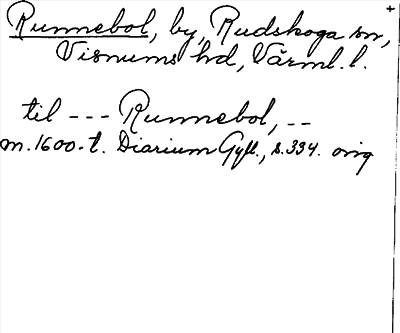 Runnebol, by, Rudskoga sn,
Visnums hd, Värml. l.
til --- Runnebol, --
m. 1600-t. Diarium Gyll., s. 334. orig